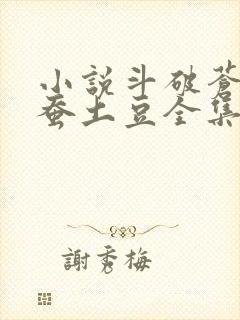 小說斗破蒼
蚕土豆全集
謝秀梅